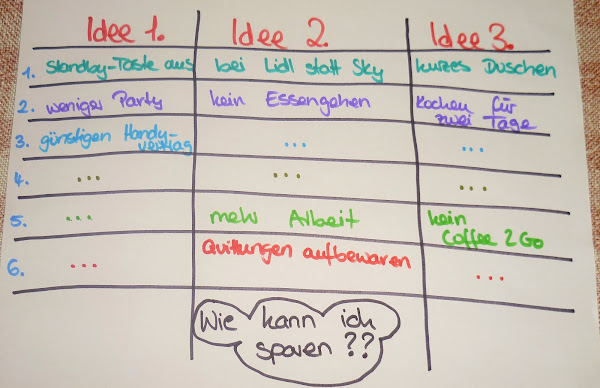 Idee 1. Idee 2. Idee 3.
1. Standby-Taste aus bei Lidl statt Sky kurzes Duschen
2. weniger Party kein Essengehen Kochen für
zwei Tage
3. günstigen Handy- ... ...
vertrag
4. ... ... ...
5. ... mehr Arbeit kein
Coffee 2 Go
6. ... Quittungen aufbewaren ...
Wie kann ich
sparen ??